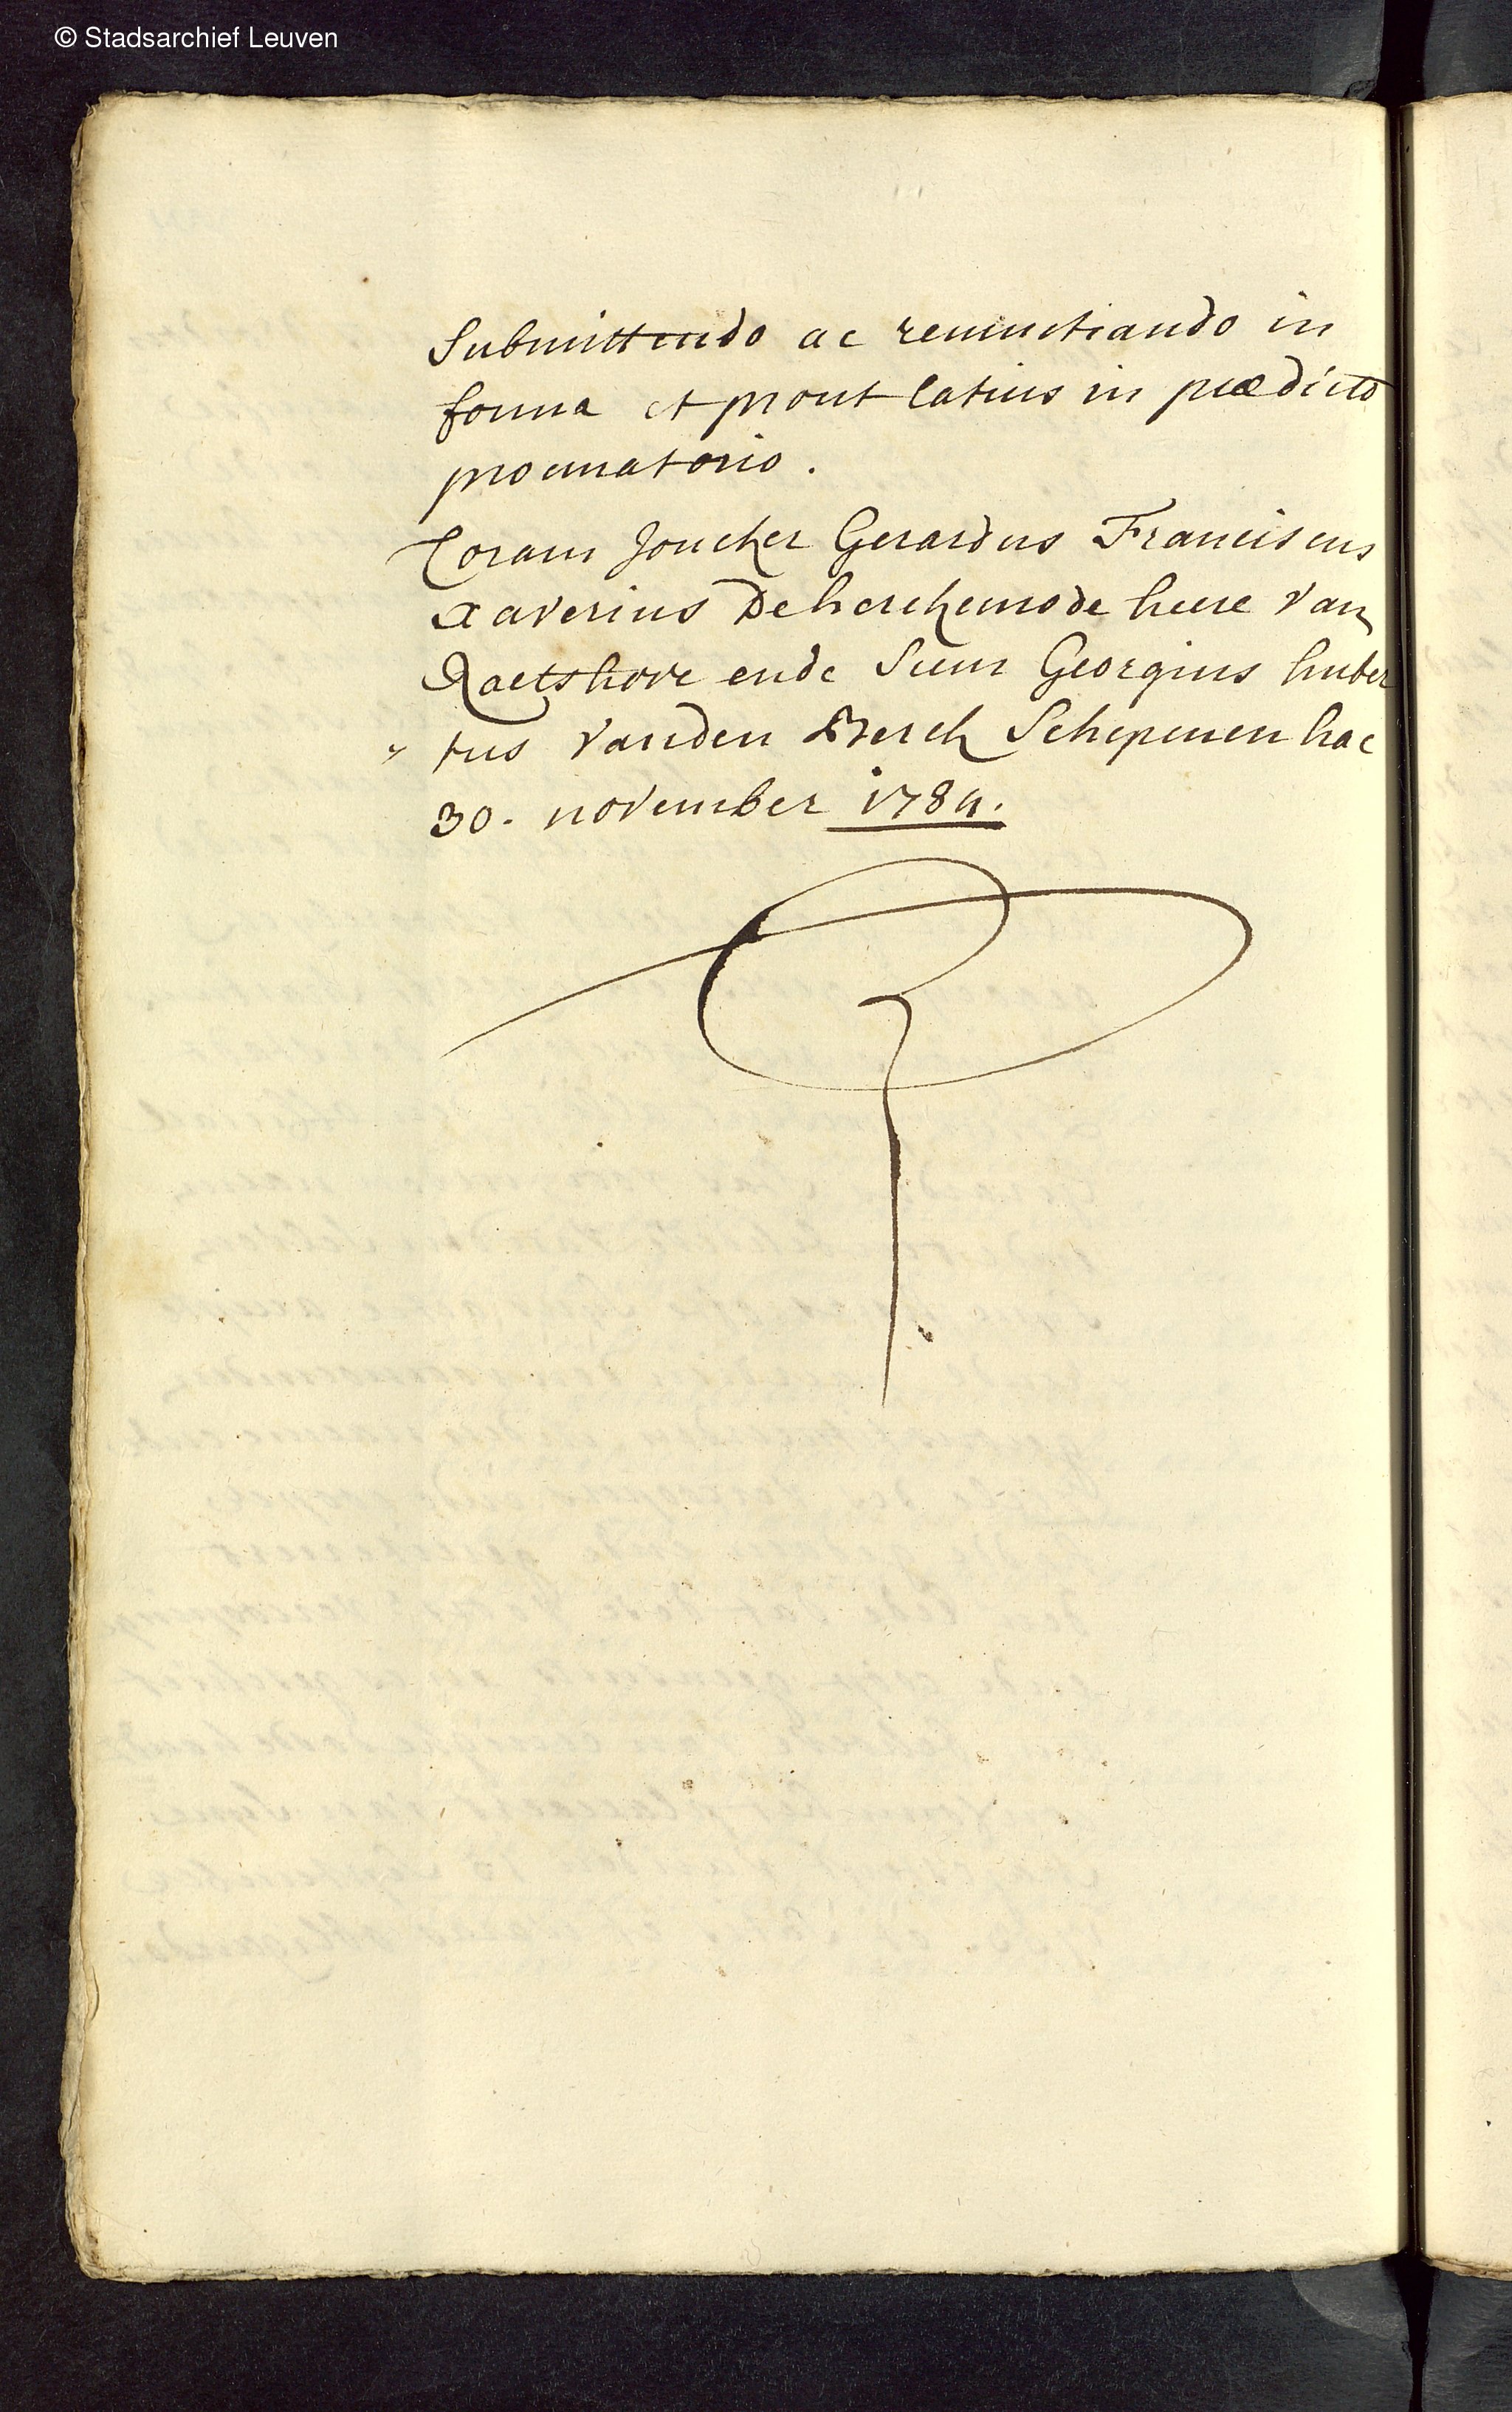 © Stadsarchief Leuven
Submittendo ac renuntiando in
forma et prout latius in prædicto
procuratorio.
Coram Joncker Gerardus Franciscus
Xaverius Deherckenrode heere van
Raetshove ende Sieur Georgius huber
tus vanden Berch Schepenen hac
30. november 1784.